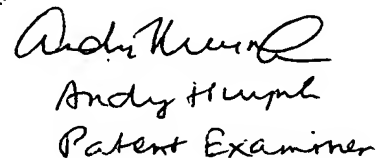 Andy Huynh
Andy Huynh
Patent Examiner